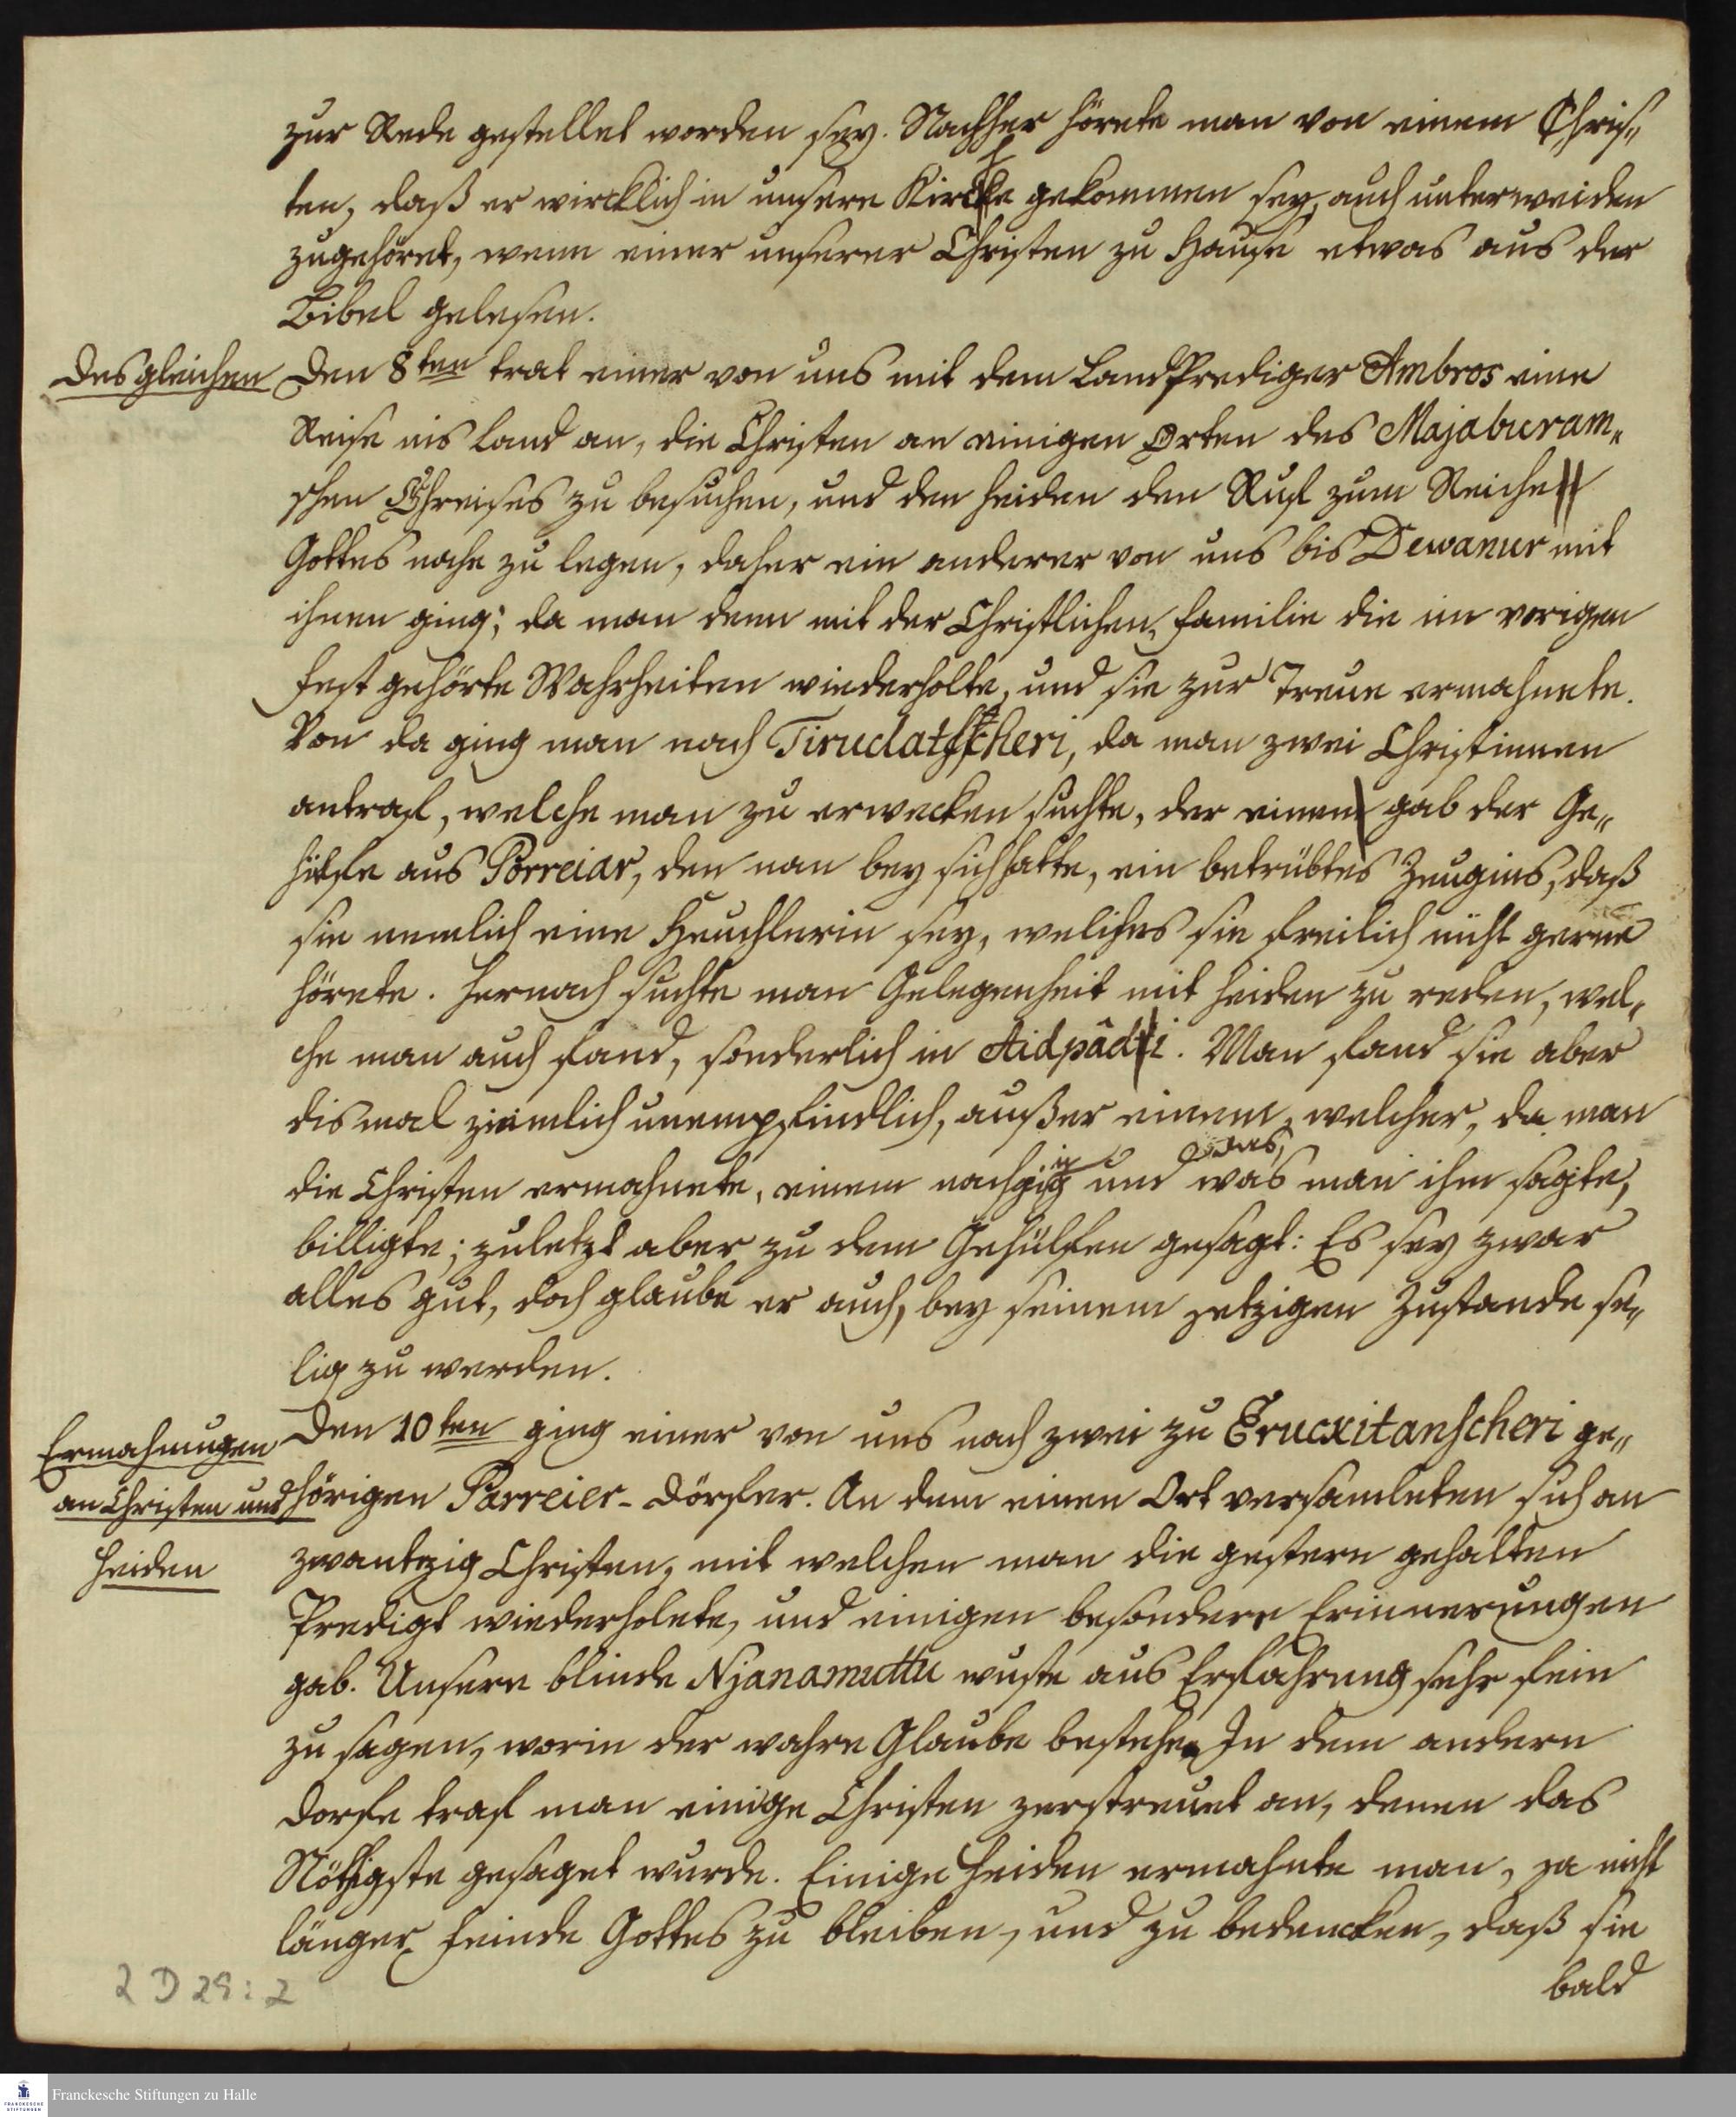 zur Rede gestellet worden sey. Nachher hörete man von einem Chris„
ten, daß er wircklich in unsere Kirche gekommen sey, auch unterweiden
zugehöret, wenn einer unserer Christen zu Hause etwas aus der
Bibel gelesen.
Desgleichen
Den 8ten trat einer von uns mit dem LandPrediger Ambros eine
Reise ins Land an, die Christen an einigen Orten des Majaburam„
schen Chreises zu besuchen, und den Heiden den Ruf zum Reiche
Gottes nahe zu legen, daher ein anderer von uns bis Dewanur mit
ihnen ging; da man denn mit der Christlichen Familie die im vorigen
Fest gehörte Wahrheiten wiederholte, und sie zur Treue ermahnete.
Von da ging man nach Tirudatscheri, da man zwei Christinnen
antraf, welche man zu erwecken suchte, der einen gab der Ge„
hülfe aus Porreiar, den man bey sich hatte, ein betrübtes Zeugnis, daß
sie nemlich eine Heuchlerin sey, welches sie freilich nicht gerne
hörete. Hernach suchte man Gelegenheit mit Heiden zu reden, wel„
che man auch fand, sonderlich in Aidpâdi. Man fand sie aber
dismal ziemlich unempfindlich, außer einem, welcher, da man
die Christen ermahnete, einem nachging und das, was man ihm sagte,
billigte; zuletzt aber zu dem Gehülfen gesagt: Es sey zwar
alles gut, doch glaube er auch, bey seinem jetzigen Zustande se„
lig zu werden.
Ermahnungen
an Christen und
Heiden
Den 10ten ging einer von uns nach zwei zu Erucxitanscheri ge„
hörigen Parreier-Dörfer. An dem einen Ort versamleten sich an
zwantzig Christen, mit welchen man die gestern gehalten
Predigt wiederholete, und einigen besondere Erinnerungen
gab. Unsere blinde Njanamuttu wuste aus Erfahrung sehr fein
zu sagen, worin der wahre Glaube bestehe. In dem andern
Dorfe traf man einige Christen zerstreuet an, denen das
Nöthigste gesaget wurde. Einige Heiden ermahnte man, ja nicht
länger Feinde Gottes zu bleiben, und zu bedencken, daß sie
bald
2 D 29:2
Franckesche Stiftungen zu Halle
FRANCKESCHE
STIFTUNGEN